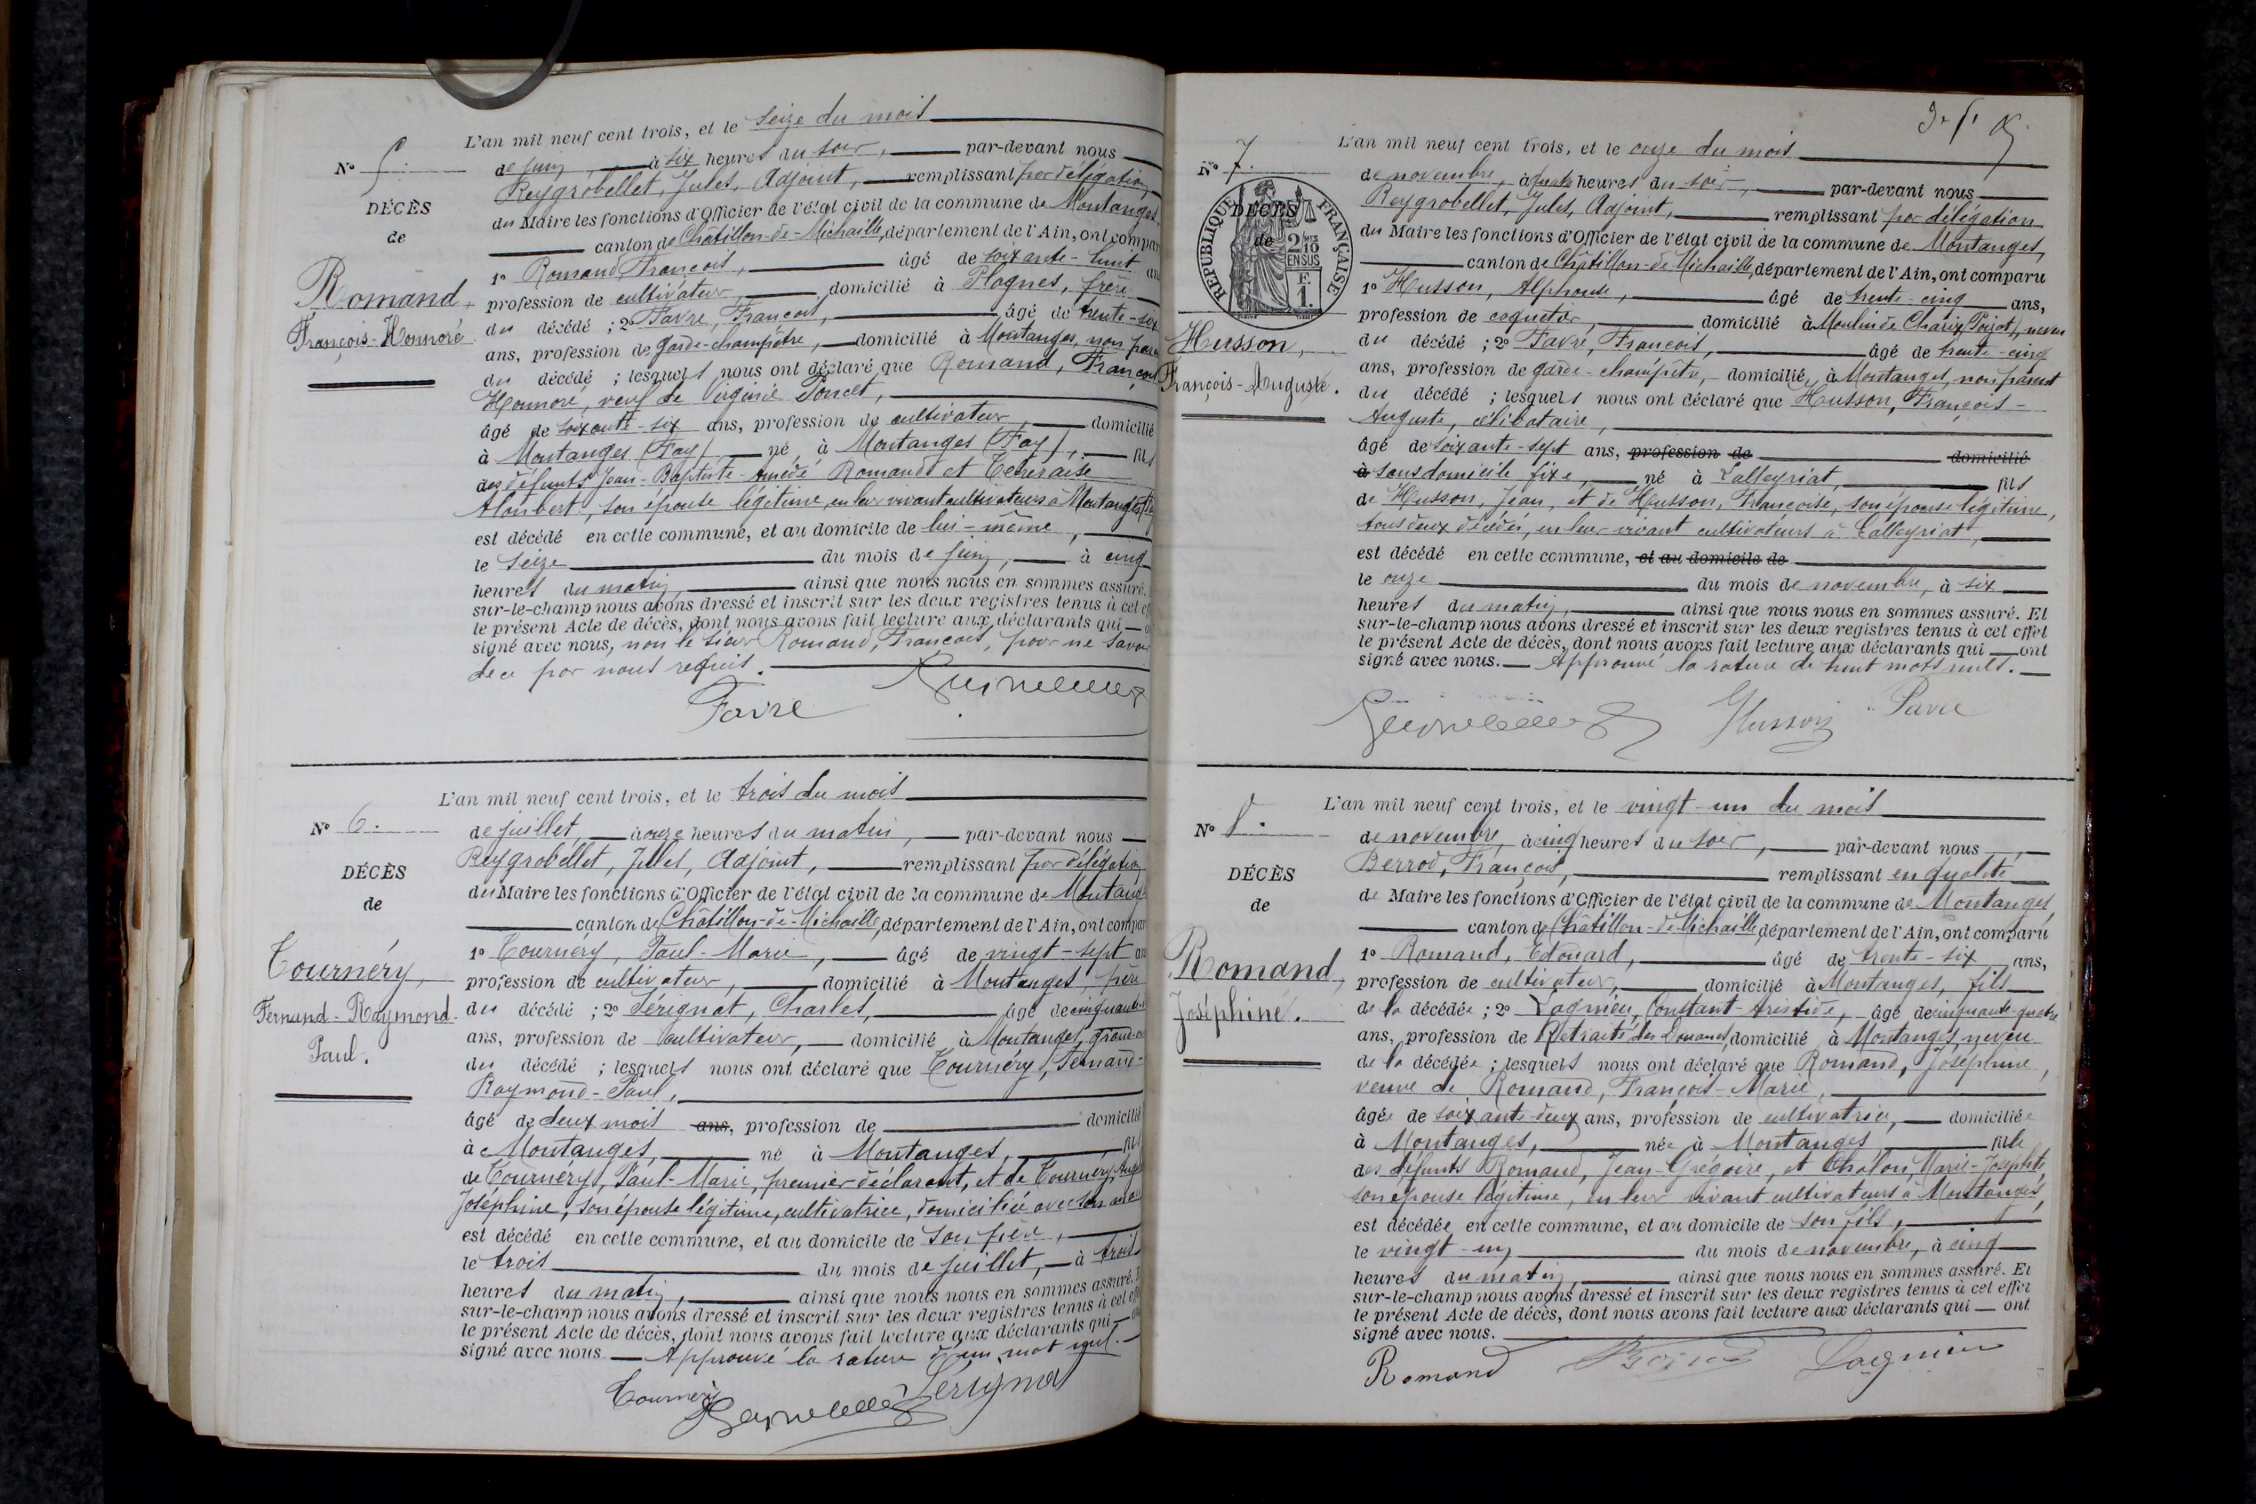 L'an mil neuf cent trois, et le seize du mois
N° 5.
de juin à six heures du soir, par-devant nous
Reygrobellet, Jules, Adjoint, remplissant par délégation
DÉCÈS
du Maire les fonctions d'Officier de l'état civil de la commune de Montanges,
de
canton de Châtillon-de-Michaille, département de l'Ain, ont compar
1° Romand François, âgé de soixante-huit an
Romand,
profession de cultivateur, domicilié à Plagnes, frère
François-Honnoré
du décédé ; 2° Favre, François, âgé de trente-six
ans, profession de garde-champêtre, domicilié à Montanges, non paren
du décédé ; lesquels nous ont déclaré que Romand, François
Honnoré, veuf de Virginie Poncet,
âgé de soixante-six ans, profession de cultivateur, domicilié
à Montanges (Fay), né à Montanges (Fay), fils
des défunts Jean-Baptiste-Amédé Romand et
son épouse légitime, en leur vivant cultivateurs à Montanges
est décédé en cette commune, et au domicile de lui-même,
le seize du mois de juin, à cinq
heures du matin, ainsi que nous nous en sommes assuré.
sur-le-champ nous avons dressé et inscrit sur les deux registres tenus à cet ef
le présent Acte de décès, dont nous avons fait lecture aux déclarants qui o
signé avec nous, non le sieur Romand, François, pour ne savoir
de ce par nous requis.
Favre
L'an mil neuf cent trois, et le trois du mois
N° 6.
de juillet, à onze heures du matin, par-devant nous
Reygrobellet, Jules, Adjoint, remplissant par délégation
DÉCÈS
du Maire les fonctions d'Officier de l'état civil de la commune de Montang
de
canton de Châtillon-de-Michaille, département de l'Ain, ont compar
1° Tournéry, Paul-Marie, âgé de vingt-sept an
Tournéry,
profession de cultivateur, domicilié à Montanges, père
Fernand-Raymond-
du décédé ; 2° Sérignat, Charles, âgé de cinquante
Paul.
ans, profession de cultivateur, domicilié à Montanges, grand
du décédé ; lesquels nous ont déclaré que Tournéry, Fernand-
Raymond-Paul,
âgé de deux mois ans, profession de domicilié
à Montanges, né à Montanges, fils
de Tournéry, Paul-Marie, premier déclarant, et de Tournéry,
Joséphine, son épouse légitime, cultivatrice, domiciliée avec son mari
est décédé en cette commune, et au domicile de son père,
le trois du mois de juillet, à trois
heures du matin, ainsi que nous nous en sommes assuré. E
sur-le-champ nous avons dressé et inscrit sur les deux registres tenus à cet eff
le présent Acte de décès, dont nous avons fait lecture aux déclarants qui
signé avec nous Approuvé la rature d'un mot nul.
Tournery Sérignat
L'an mil neuf cent trois, et le onze du mois
N° 7.
de novembre, à quatre heures du soir, par-devant nous
Reygrobellet, Jules, Adjoint, remplissant par délégation
DÉCÈS
du Maire les fonctions d'Officier de l'état civil de la commune de Montanges,
de
RÉPUBLIQUE FRANÇAISE
2/10 EN SUS
F. 1.
canton de Châtillon-de-Michaille, département de l'Ain, ont comparu
1° Husson, Alphonse, âgé de trente-cinq ans,
profession de coquetier, domicilié à Moulin de Charix, Poizat, neveu
Husson,
du décédé ; 2° Favre, François, âgé de trente-cinq
François-Auguste.
ans, profession de garde-champêtre, domicilié à Montanges, non parent
du décédé ; lesquels nous ont déclaré que Husson, François-
Auguste, célibataire,
âgé de soixante-sept ans, profession de domicilié
à sans domicile fixe, né à Lalleyriat, fils
de Husson, Jean, et de Husson, Françoise, son épouse légitime,
tous deux décédés, en leur vivant cultivateurs à Lalleyriat,
est décédé en cette commune, et au domicile de
le onze du mois de novembre, à six
heures du matin, ainsi que nous nous en sommes assuré. Et
sur-le-champ nous avons dressé et inscrit sur les deux registres tenus à cet effet
le présent Acte de décès, dont nous avons fait lecture aux déclarants qui ont
signé avec nous. Approuvé la rature de huit mots nuls.
Husson Favre
L'an mil neuf cent trois, et le vingt-un du mois
N° 8.
de novembre, à cinq heures du soir, par-devant nous
Berrod, François, remplissant en qualité
DÉCÈS
de Maire les fonctions d'Officier de l'état civil de la commune de Montanges
de
canton de Châtillon-de-Michaille, département de l'Ain, ont comparu
1° Romand, Edouard, âgé de trente-six ans,
Romand,
profession de cultivateur, domicilié à Montanges, fils
Joséphine.
de la décédée ; 2° Lagnieu, Constant-Aristide, âgé de cinquante-quatre
ans, profession de Retraité des Douanes, domicilié à Montanges, neveu
de la décédée ; lesquels nous ont déclaré que Romand, Joséphine,
veuve de Romand, François-Marie,
âgée de soixante-deux ans, profession de cultivatrice, domiciliée
à Montanges, née à Montanges fille
des défunts Romand, Jean-Grégoire, et Chalon, Marie-Josephte,
son épouse légitime, en leur vivant cultivateurs à Montanges,
est décédée en cette commune, et au domicile de son fils,
le vingt-un du mois de novembre, à cinq
heures du matin, ainsi que nous nous en sommes assuré. Et
sur-le-champ nous avons dressé et inscrit sur les deux registres tenus à cet effet
le présent Acte de décès, dont nous avons fait lecture aux déclarants qui ont
signé avec nous.
Romand Lagnieu